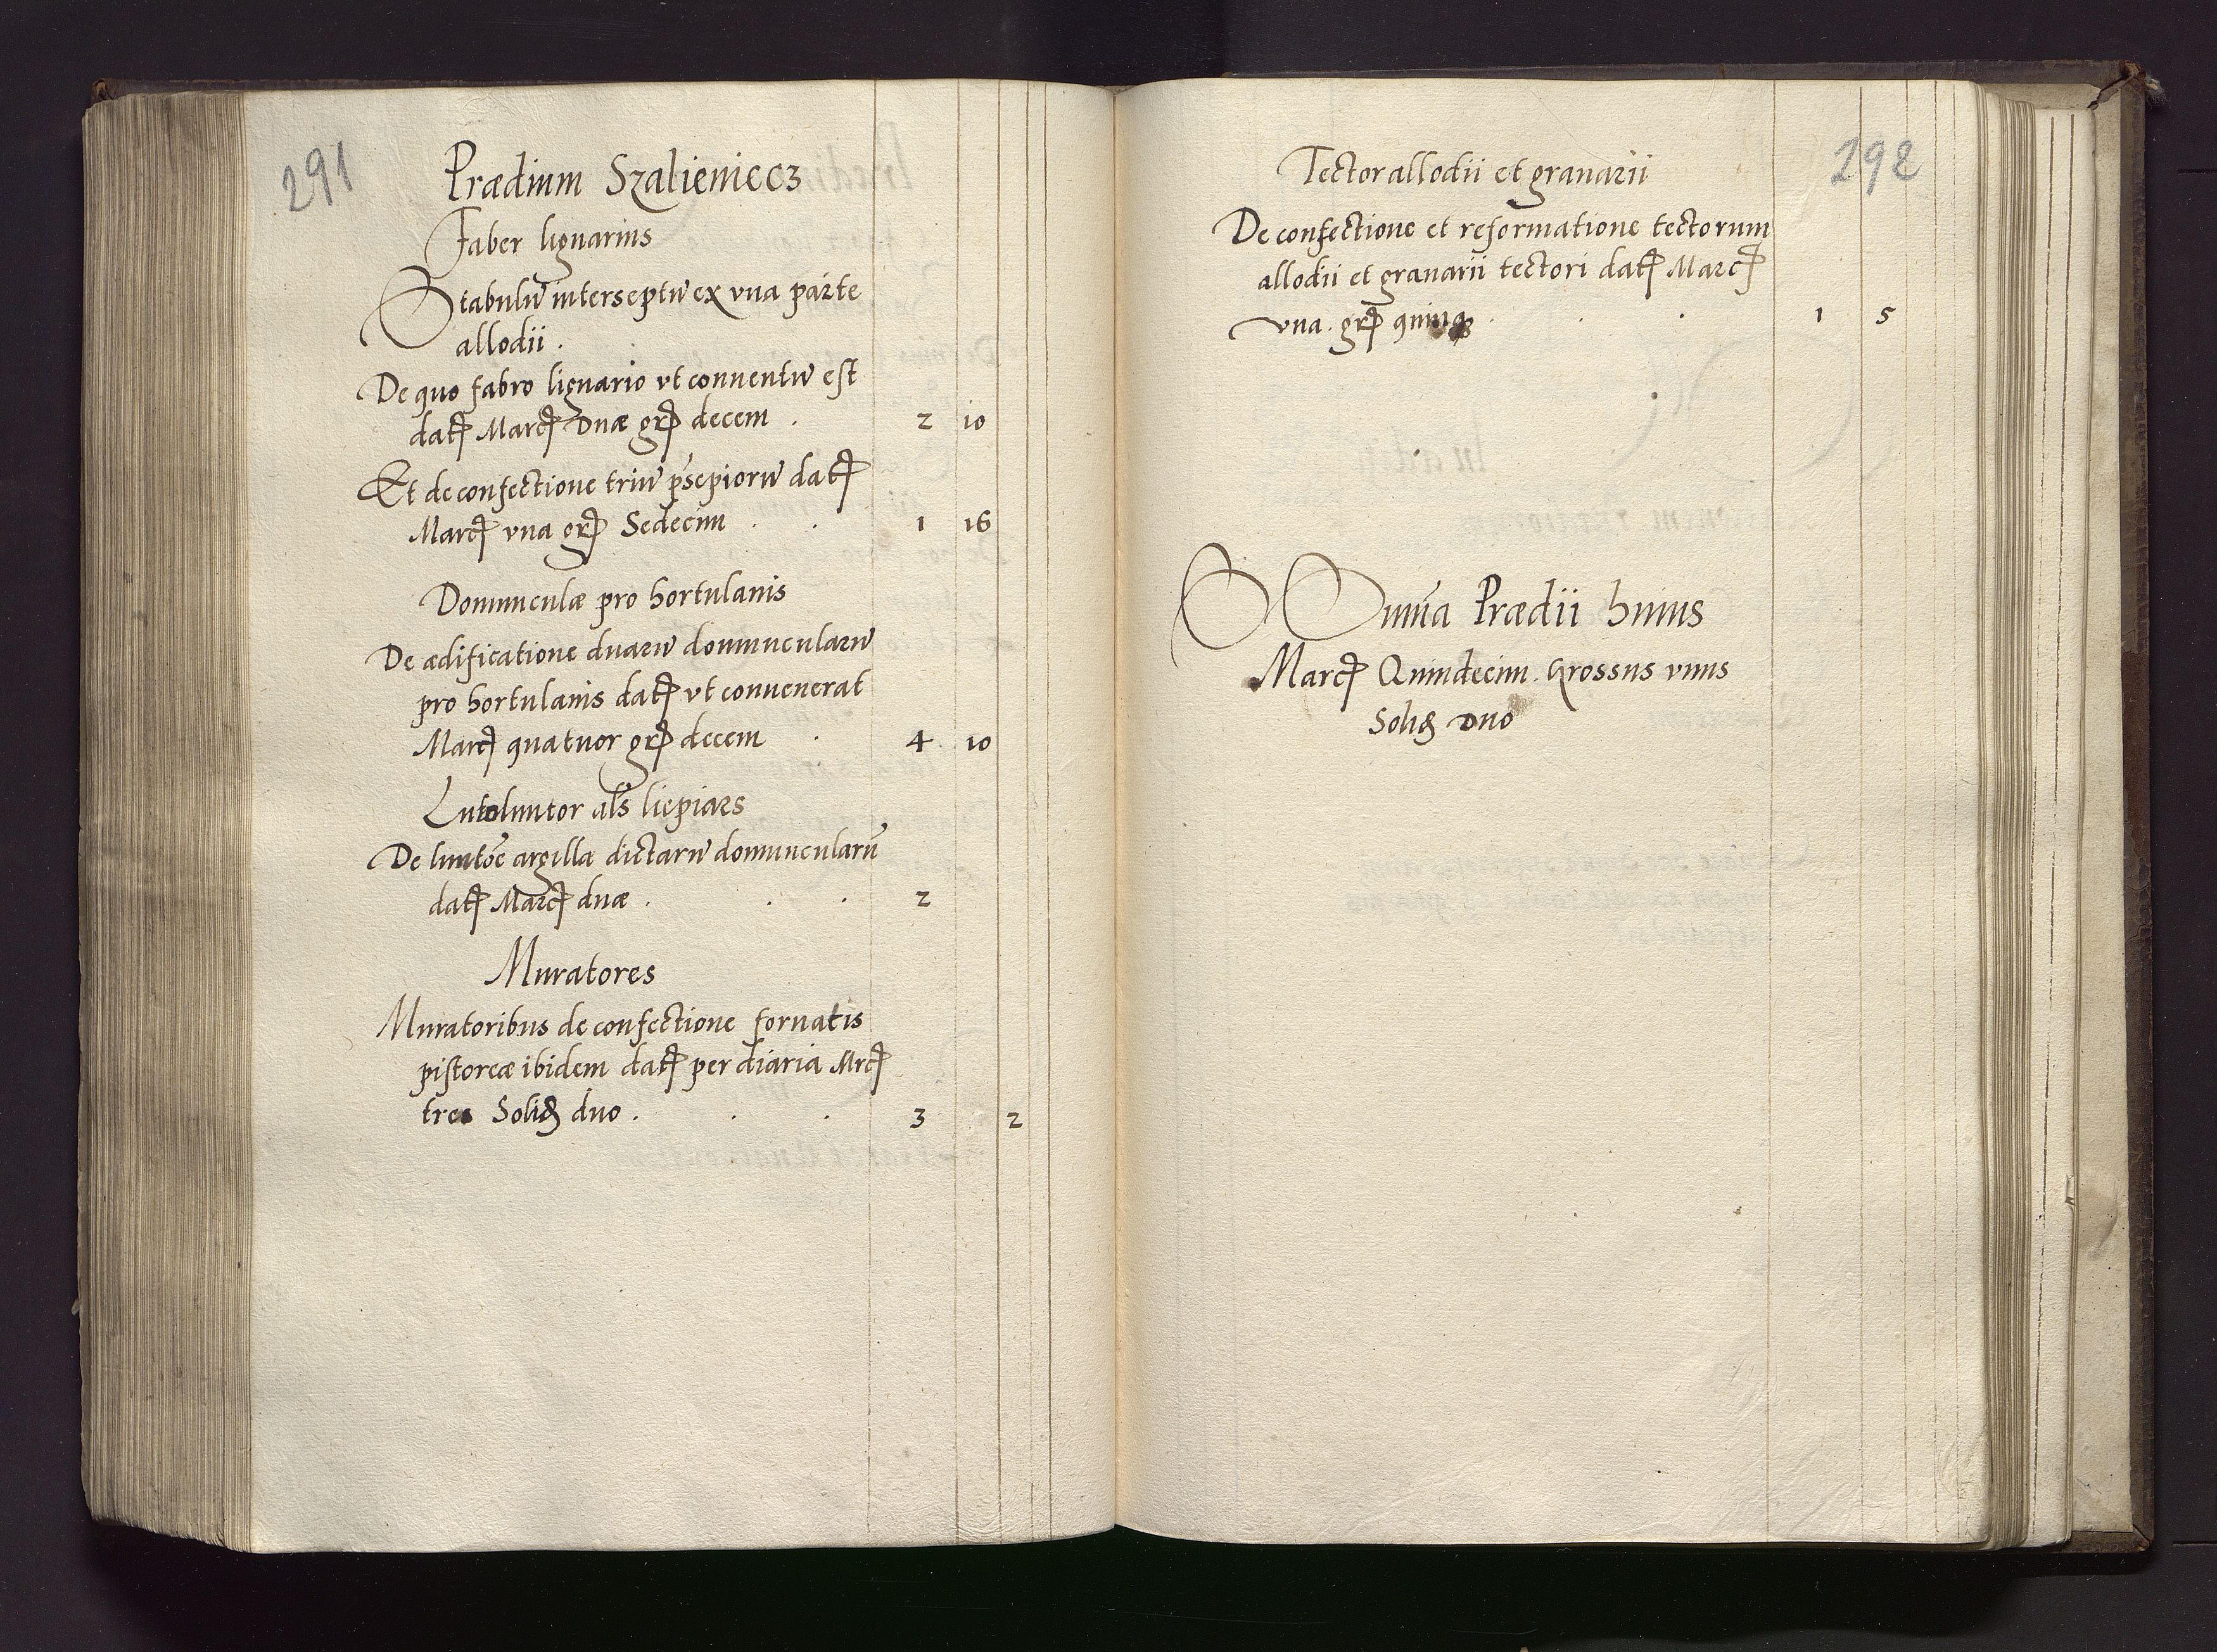 291
Prædium Szalieniecz
Faber lignarius
Stabulū interseptū ex vna parte
allodii .
De quo fabro lignario vt conuentū est
datꝭ Marcꝭ duæ grꝭ decem . 2 10
Et de confectione triū p̄sepiorū datꝭ
Marcꝭ vna grꝭ Sedecim . . 1 16
Domunculæ pro hortulanis
De ædificatione duarū domuncularū
pro hortulanis datꝭ vt conuenerat
Marcꝭ quatuor grꝭ decem . 4 10
Lutolimtor al̄s liepiars
De limtōe argilla dictarū domuncularū
datꝭ Marcꝭ duæ . . . 2
Muratores
Muratoribus de confectione fornatis
pistoreæ ibidem datꝭ per diaria Mrcꝭ
tres Solid duo . . . 3 2
292
Tector allodii et granarii
De confectione et reformatione tectorum
allodii et granarii tectori datꝭ Marcꝭ
vna . grꝭ quinqꝫ . . . 1 5
Sum̄a Prædii huius
Marcꝭ Quindecim . Grossus vnus
Solid duo